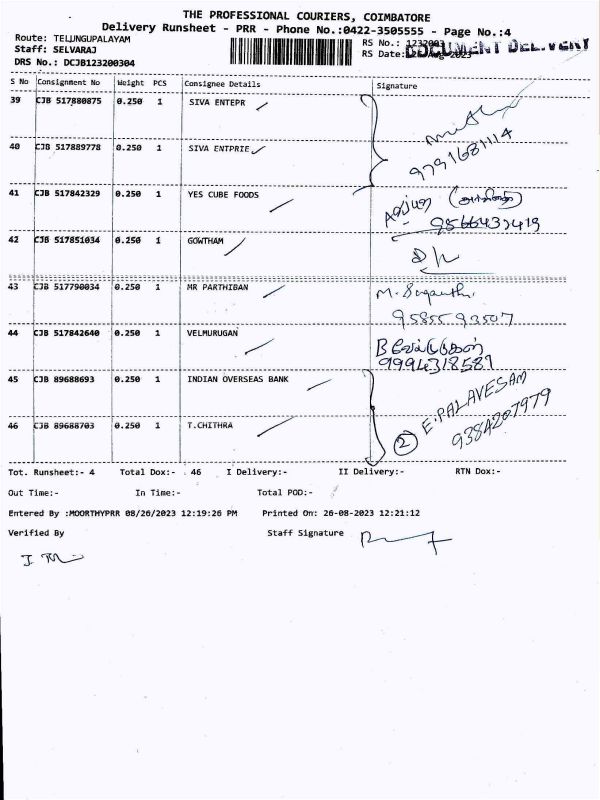 THE PROFESSIONAL COURIERS, COIMBATORE
Delivery Runsheet - PRR - Phone No.:0422-3505555 - Page No.:4
Route: TELUNGUPALAYAM
Staff: SELVARAJ
DRS No.: DCJB123200304
RS No.:
RS Date:
DOCUMENT DELIVERY
S No Consignment No Weight PCS Consignee Details Signature
39 CJB 517880875 0.250 1 SIVA ENTEPR
40 CJB 517889778 0.250 1 SIVA ENTPRIE
9791681114
41 CJB 517842329 0.250 1 YES CUBE FOODS
9566432419
42 CJB 517851034 0.250 1 GOWTHAM
D/L
43 CJB 517790034 0.250 1 MR PARTHIBAN
9585593507
44 CJB 517842640 0.250 1 VELMURUGAN
B வேல்முருகன்
9994318587
45 CJB 89688693 0.250 1 INDIAN OVERSEAS BANK
46 CJB 89688703 0.250 1 T.CHITHRA
② E.PALAVESAM
9384207979
Tot. Runsheet:- 4 Total Dox:- 46 I Delivery:- II Delivery:- RTN Dox:-
Out Time:- In Time:- Total POD:-
Entered By :MOORTHYPRR 08/26/2023 12:19:26 PM Printed On: 26-08-2023 12:21:12
Verified By Staff Signature